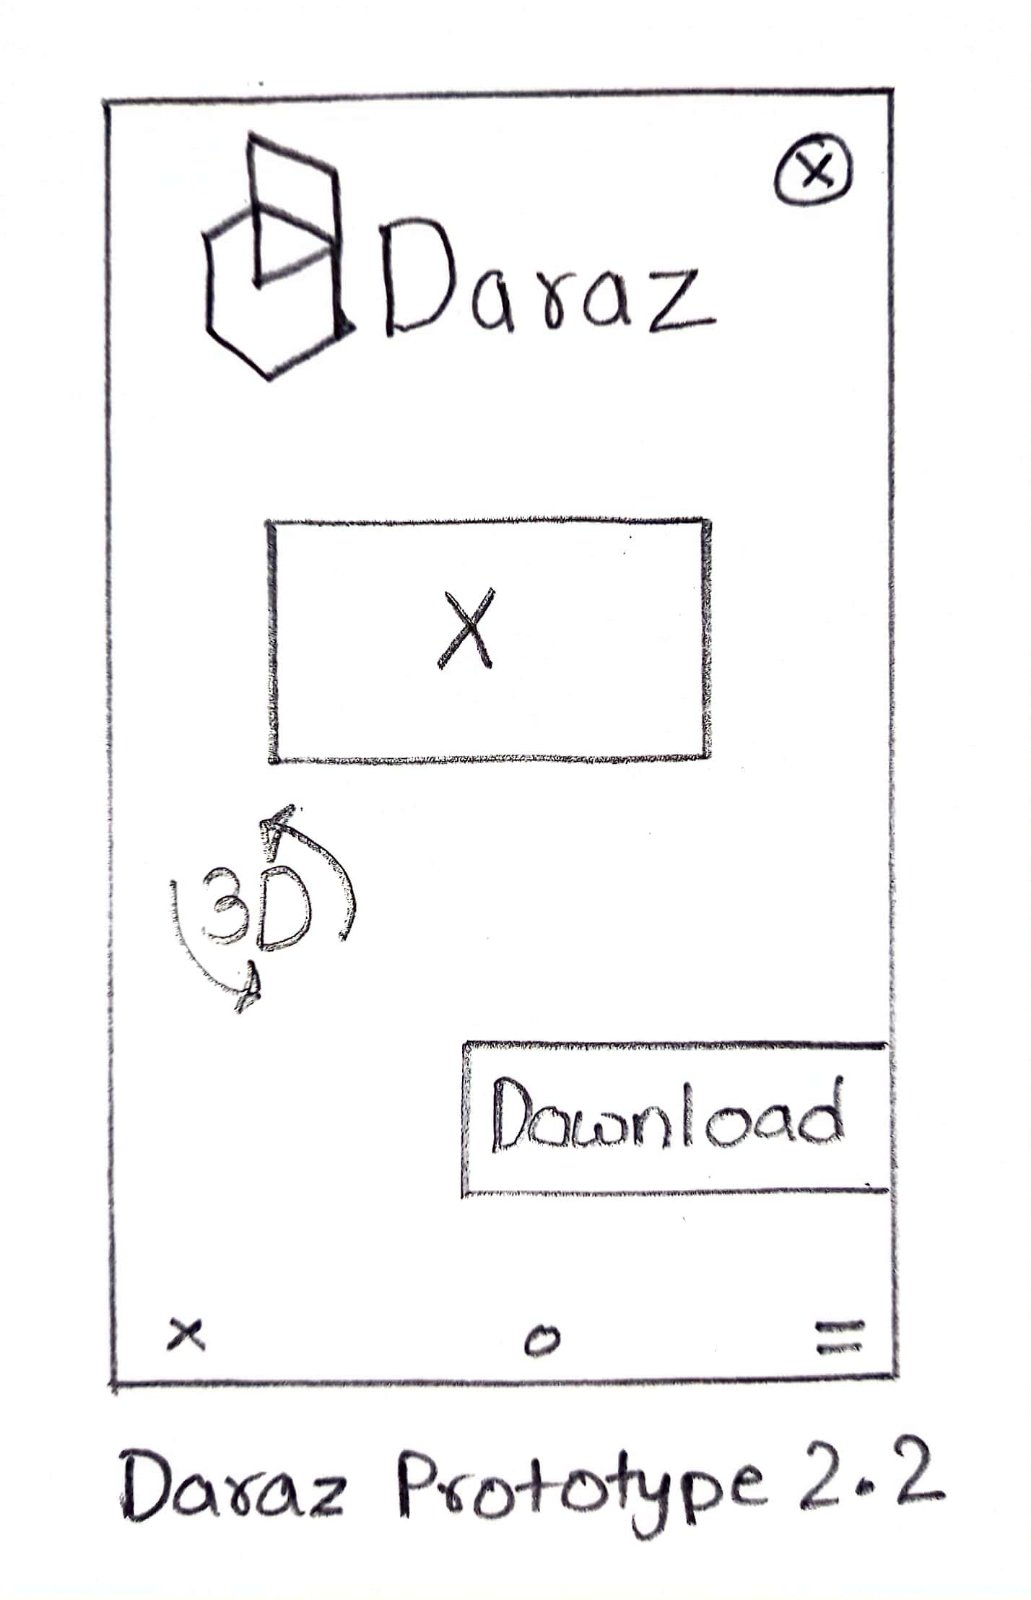 X
Daraz
X
3D
Download
x o =
Daraz Prototype 2.2